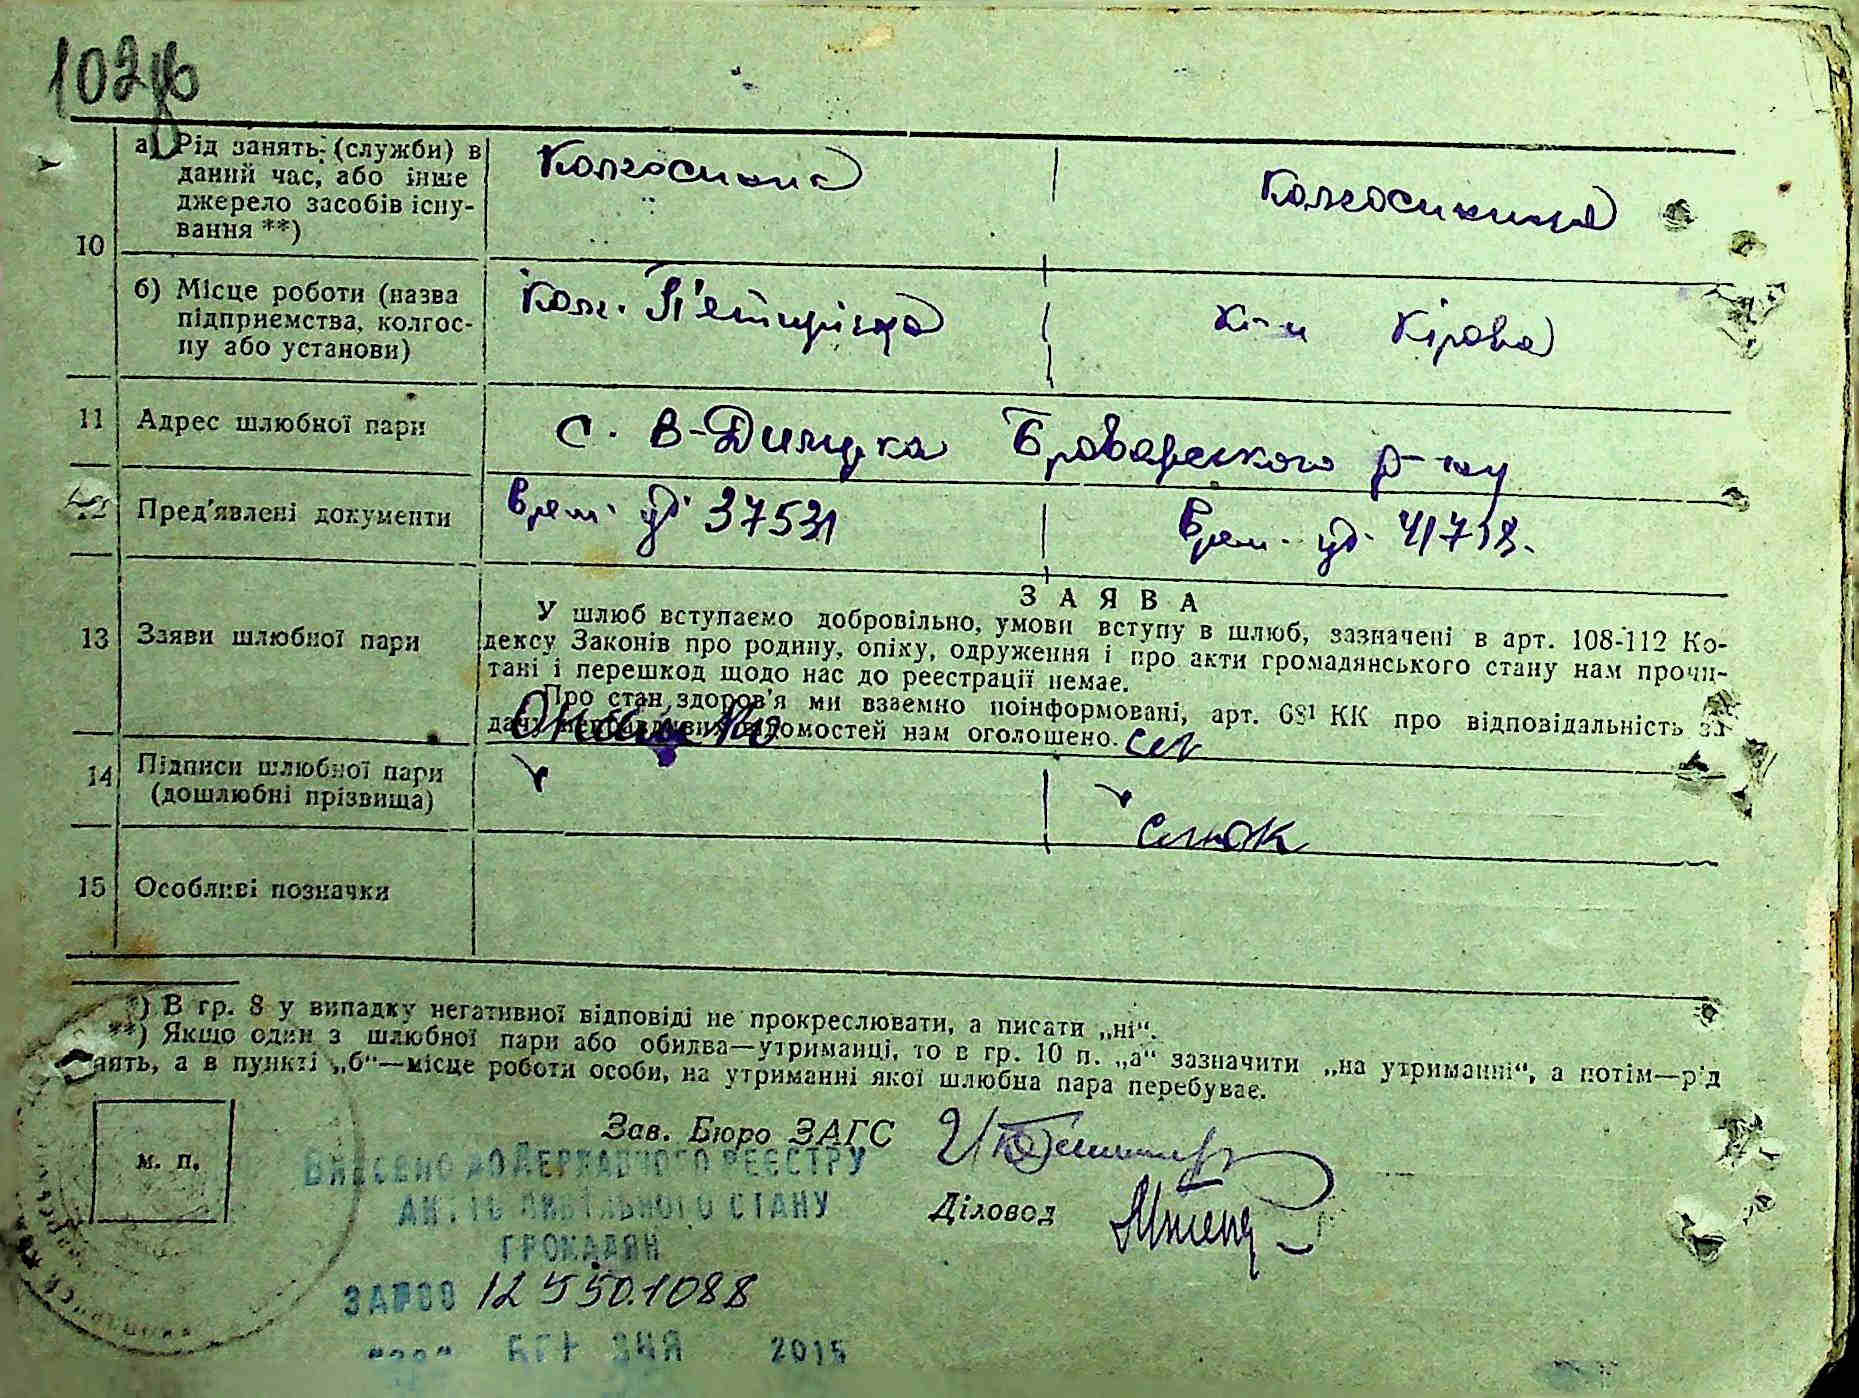 102
а) Рід занять (службиː) в
даний час, або інше
джерело засобів існу-
вання **)
Колгоспник
Колгоспниця
10
б) Місце роботи (назва
підприємства, колгос-
пу або установи)
Колг. П'ятирічка
к-п Кірова
11
Адрес шлюбної пари
с. В-Димерка Броварського р-ну
12
Пред'явлені документи
Врем. уд. 37531
Врем. уд. 41718.
13
Заяви шлюбної пари
ЗАЯВА
У шлюб вступаємо добровільно, умови вступу в шлюб, зазначені в арт. 108-112 Ко-
дексу Законів про родину, опіку, одруження і про акти громадянського стану нам прочи-
тані і перешкод щодо нас до реєстрації немає.
Про стан здоров'я ми взаємно поінформовані, арт. 68¹ КК про відповідальність за
дачу неправдивих відомостей нам оголошено.
14
Підписи шлюбної пари
(дошлюбні прізвища)
15
Особливі позначки
*) В гр. 8 у випадку негативної відповіді не прокреслювати, а писати „ні“.
**) Якщо один з шлюбної пари або обидва—утриманці, то в гр. 10 п. „а“ зазначити „на утриманні“, а потім—рід
занять, а в пункті „б“—місце роботи особи, на утриманні якої шлюбна пара перебуває.
Зав. Бюро ЗАГС
м. п.
ВНЕСЕНО ДО ДЕРЖАВНОГО РЕЄСТРУ
АКТІВ ЦИВІЛЬНОГО СТАНУ
ГРОМАДЯН
Діловод
12550.1088
2015